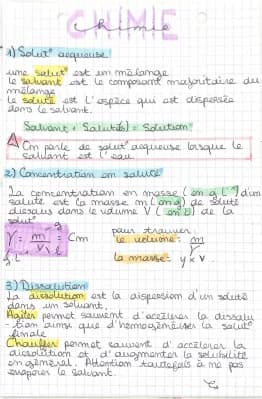 CHIMIE
chimie
1) Solut° aequeuse
une solut° est un mélange
le solvant est le composant majoritaire du
mélange
le soluté est l'espèce qui est dispersée
dans le solvant.
Solvant + Soluté(s) = Solution
On parle de solut° aequeuse lorsque le
solvant est l'eau
2) Concentration en soluté
La concentration en masse (en g.L⁻¹) d'un
soluté est la masse m (en g) de soluté
dissous dans le volume V (en L) de la
solut°
γ = m/V = Cm
g
L
g.L
pour trouver :
le volume: m/γ
la masse: γ x V
3) Dissolution
La dissolution est la dispersion d'un soluté
dans un solvant.
Agiter permet souvent d'accélérer la dissolu
-tion ainsi que d'homogénéiser la solut°
finale
Chauffer permet souvent d'accélérer la
dissolution et d'augmenter la solubilité
en général. Attention toutefois à ne pas
évaporer le solvant.